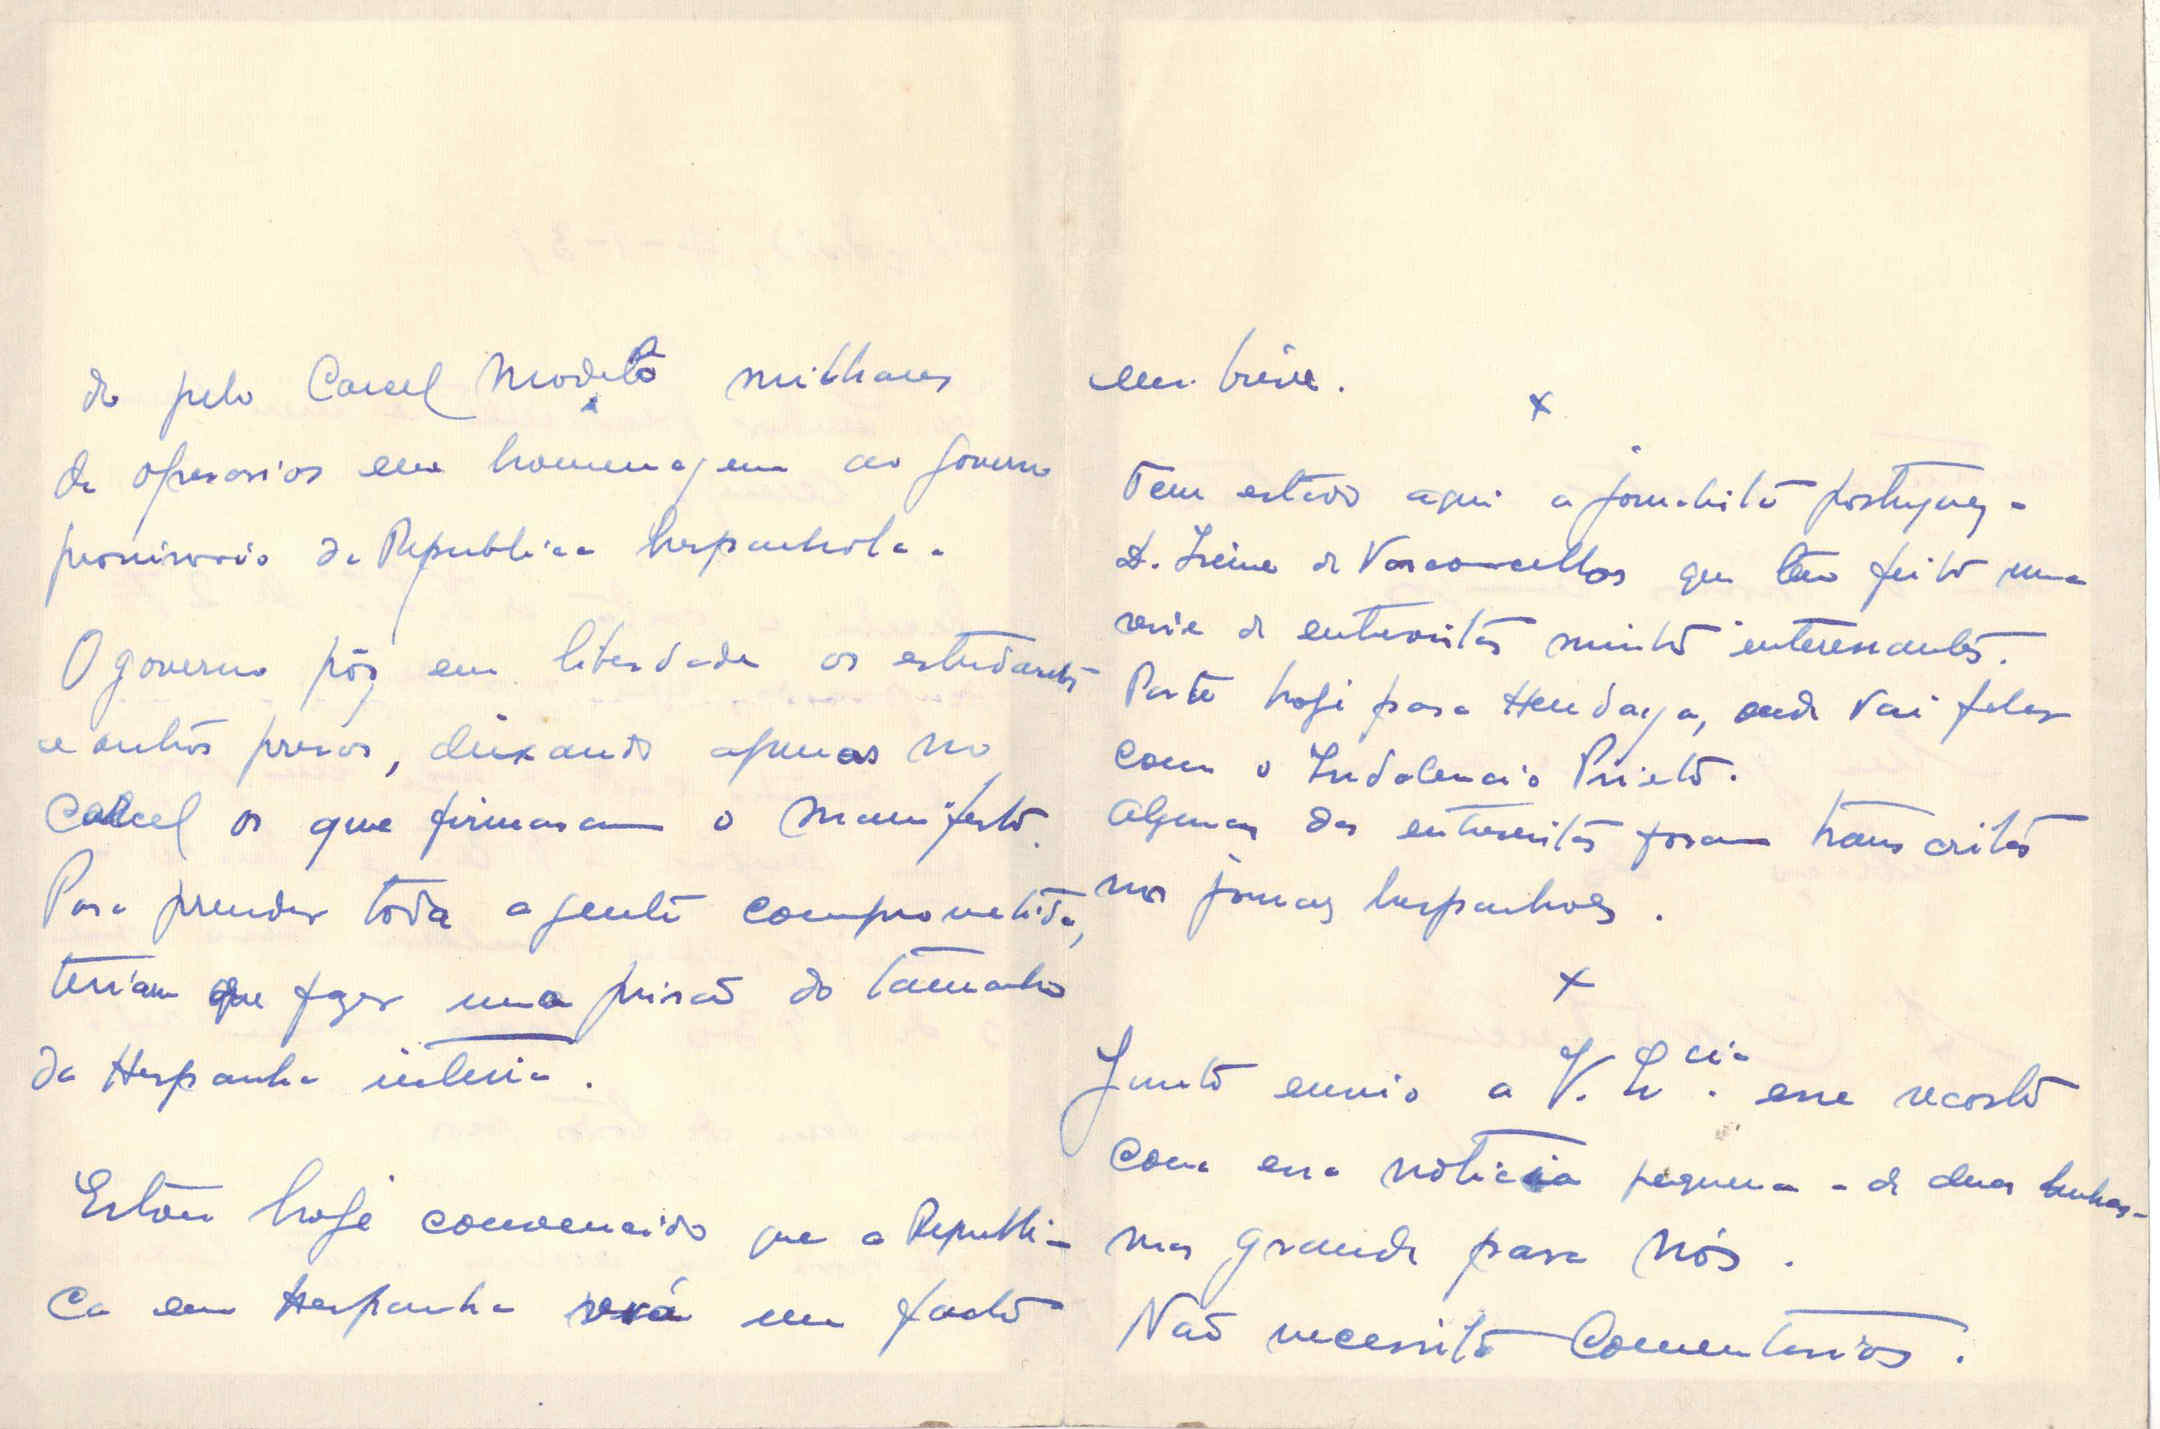 do pelo Carcel Modelo milhares
de operarios em homenagem ao governo
provisorio da Republica hespanhola.
O governo pôz em liberdade os estudantes
e outros presos, deixando apenas no
Carcel os que firmaram o manifesto.
Para prender toda a gente compromettida,
teriam que fazer uma prisão do tamanho
da Hespanha inteira.
Estou hoje convencido que a Republi-
ca em Hespanha será um facto
em breve.
x
Tem estado aqui a jornalista portugueza
D. Irene de Vasconcellos que tem feito uma
serie de entrevistas muito interessantes.
Parte hoje para Hendaya, onde vai falar
com o Indalencio Prieto.
Algumas das entrevistas foram transcritas
nos jornaes hespanhoes.
x
Junto envio a V. Ex.cia esse recorte
com essa noticia pequena - de duas linhas -
mas grande para nós.
Não necessita Comentarios.